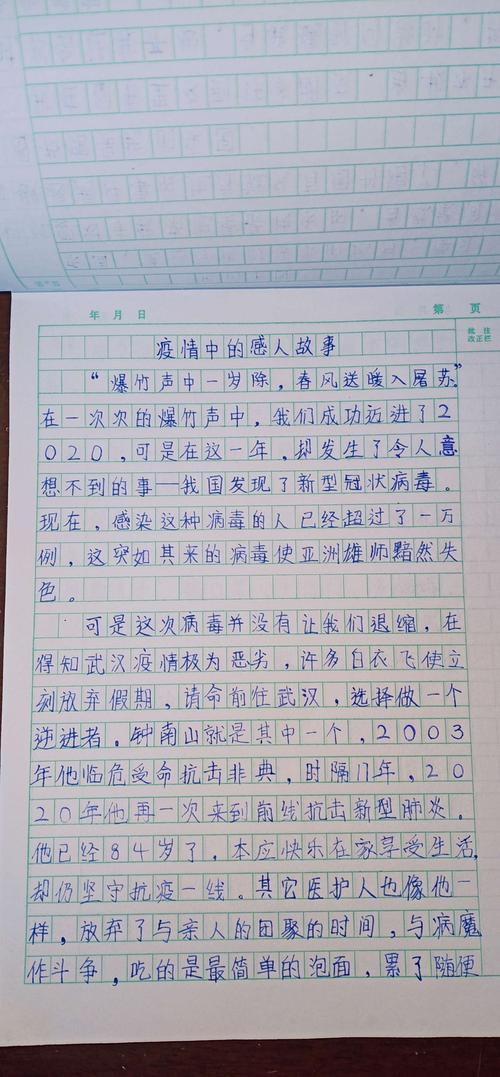 年 月 日 第 页
批 注
改正栏
疫情中的感人故事
“爆竹声中一岁除，春风送暖入屠苏”
在一次次的爆竹声中，我们成功迈进了2
020，可是在这一年，却发生了令人意
想不到的事—我国发现了新型冠状病毒。
现在，感染这种病毒的人已经超过了一万
例，这突如其来的病毒使亚洲雄师黯然失
色。
可是这次病毒并没有让我们退缩，在
得知武汉疫情极为恶劣，许多白衣飞使立
刻放弃假期，请命前往武汉，选择做一个
逆进者。钟南山就是其中一个，2003
年他临危受命抗击非典，时隔17年，20
20年他再一次来到前线抗击新型肺炎。
他已经84岁了，本应快乐在家享受生活，
却仍坚守抗疫一线。其它医护人也像他一
样，放弃了与亲人的团聚的时间，与病魔
作斗争，吃的是最简单的泡面，累了随便